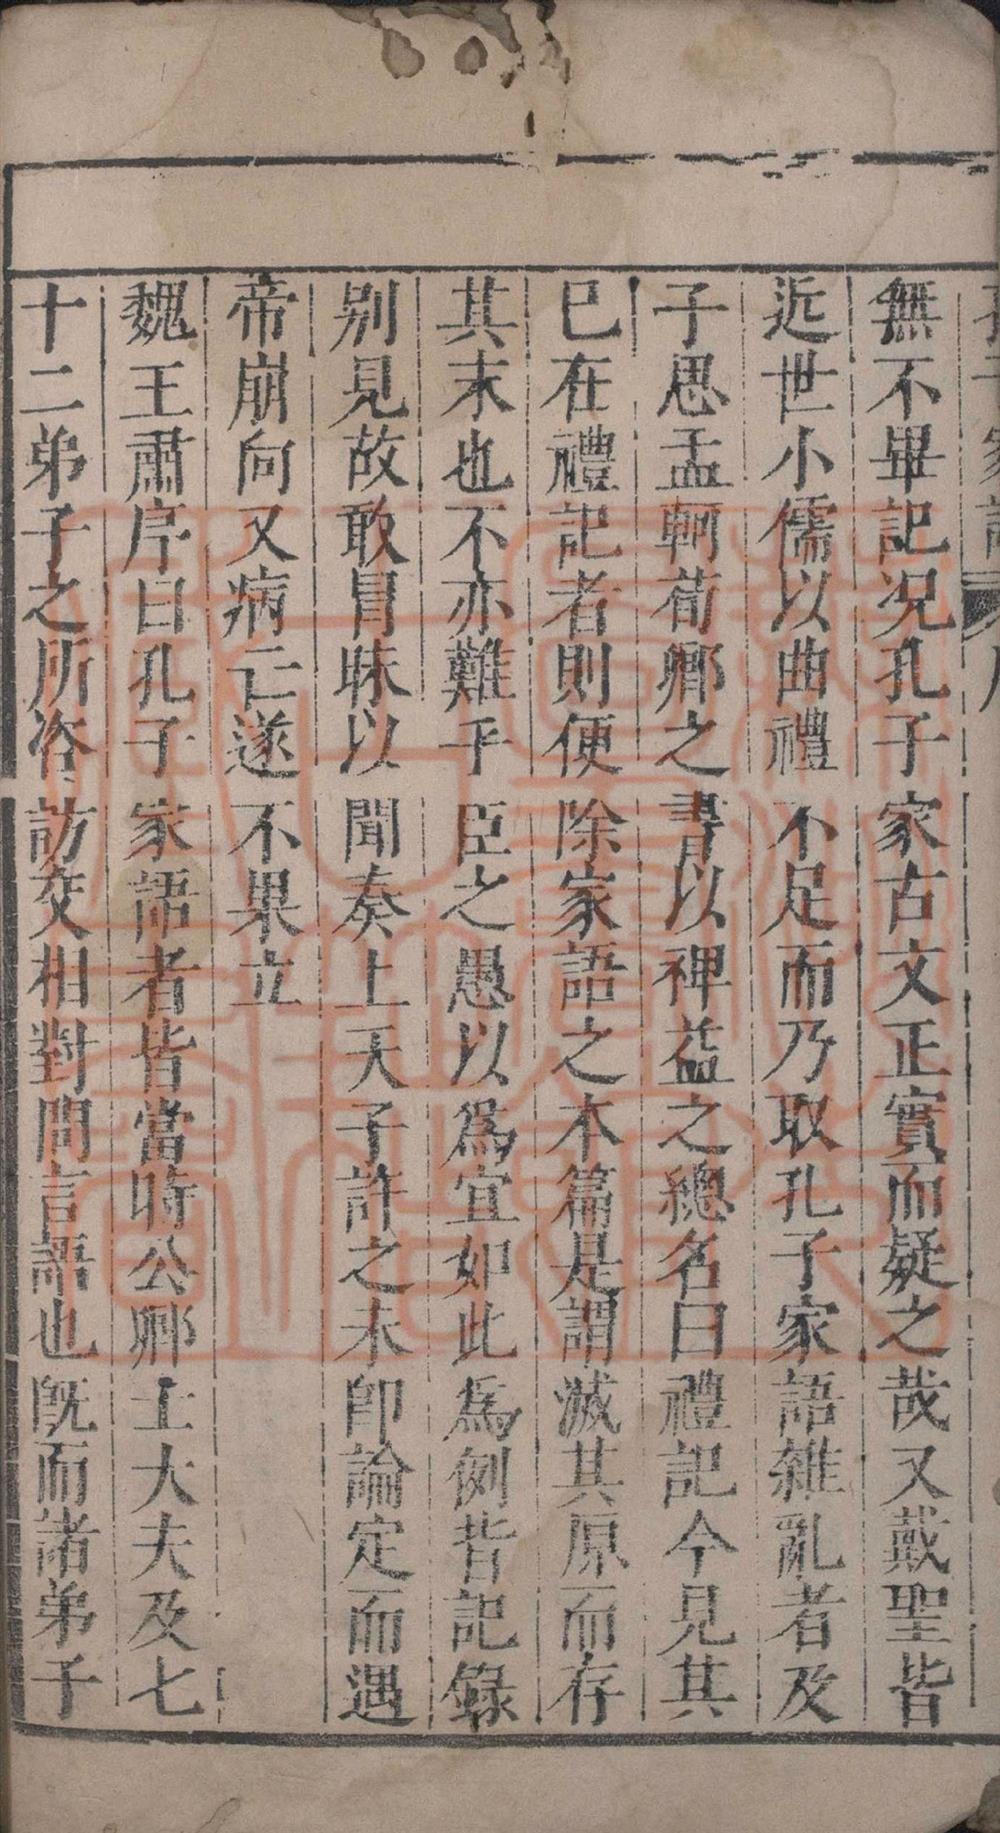 孔子家語 序
無不畢記况孔子家古文正實而疑之哉又戴聖皆
近世小儒以曲禮不足而乃取孔子家語雜亂者及
子思孟軻荀卿之書以裨益之總名曰禮記今見其
已在禮記者則便除家語之本篇是謂滅其原而存
其末也不亦難乎臣之愚以爲宜如此爲例皆記錄
别見故敢冒昧以聞奏上天子許之未即論定而遇
帝崩向又病亡遂不果立
魏王肅序曰孔子家語者皆當時公卿士大夫及七
十二弟子之所咨訪交相對問言語也既而諸弟子